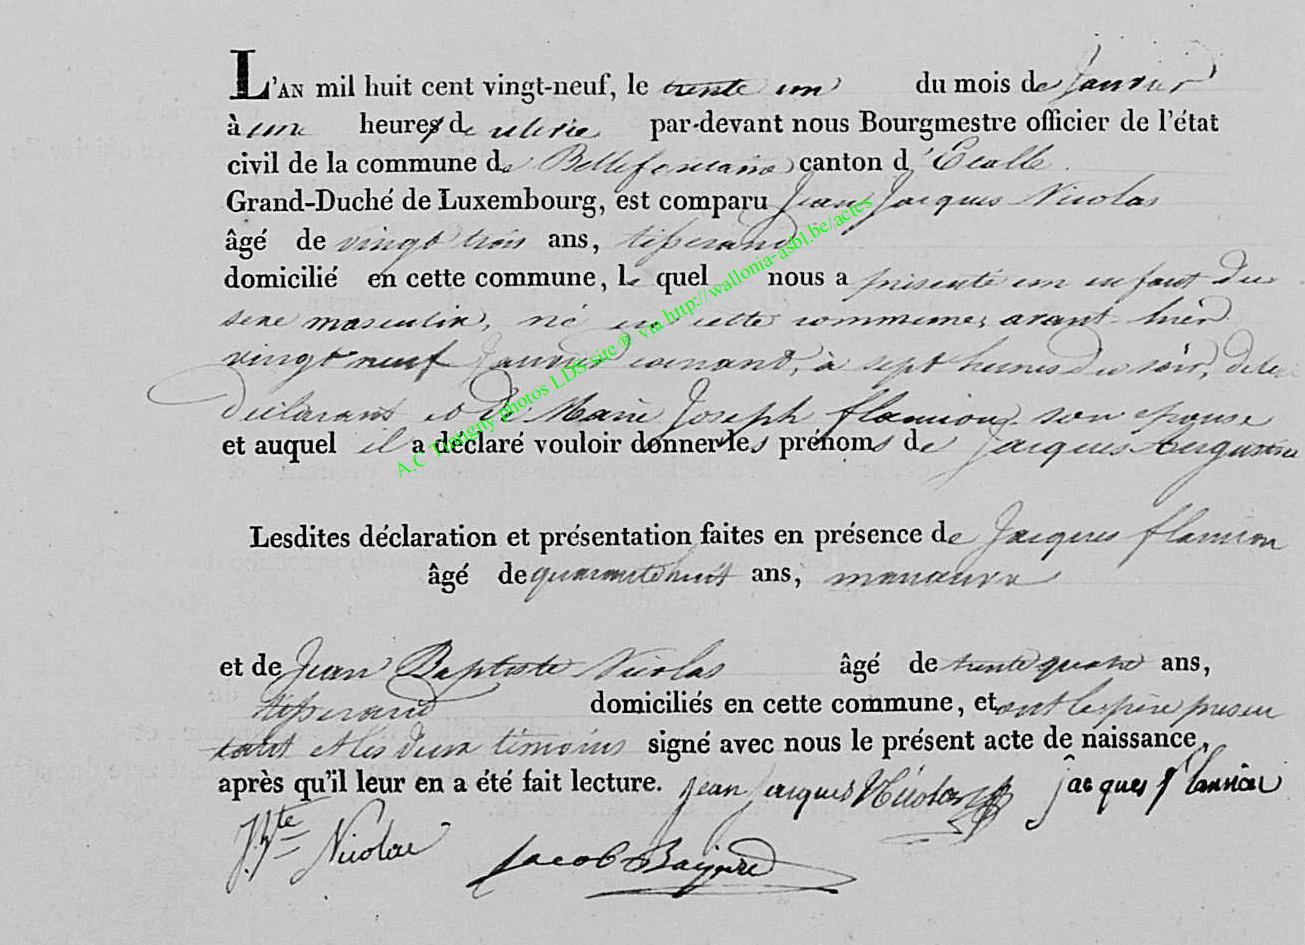 L'AN mil huit cent vingt-neuf, le trente un du mois de Janvier
à une heure de relevée par-devant nous Bourgmestre officier de l'état
civil de la commune de Bellefontaine canton d'Etalle
Grand-Duché de Luxembourg, est comparu Jean Jacques Nicolas
âgé de vingt trois ans, tisserand
domicilié en cette commune, le quel nous a présenté un enfant du
sexe masculin, né en cette commune, avant hier
vingt neuf Janvier courant, à sept heures du soir, de lui
déclarant et de Marie Joseph flamion son epouse
et auquel il a déclaré vouloir donner les prénoms de Jacques Augustin
Lesdites déclaration et présentation faites en présence de Jacques flamion
âgé de quarante huit ans, manœuvre
et de Jean Baptiste Nicolas âgé de trente quatre ans,
tisserand domiciliés en cette commune, et ont le père présen
tant et les deux témoins signé avec nous le présent acte de naissance,
après qu'il leur en a été fait lecture. jean jacques Nicolas jacques flamion
J. Bte Nicolas Jacob
A.C Tintigny photos LDS sue ® via http://wallonia-asbl.be/actes